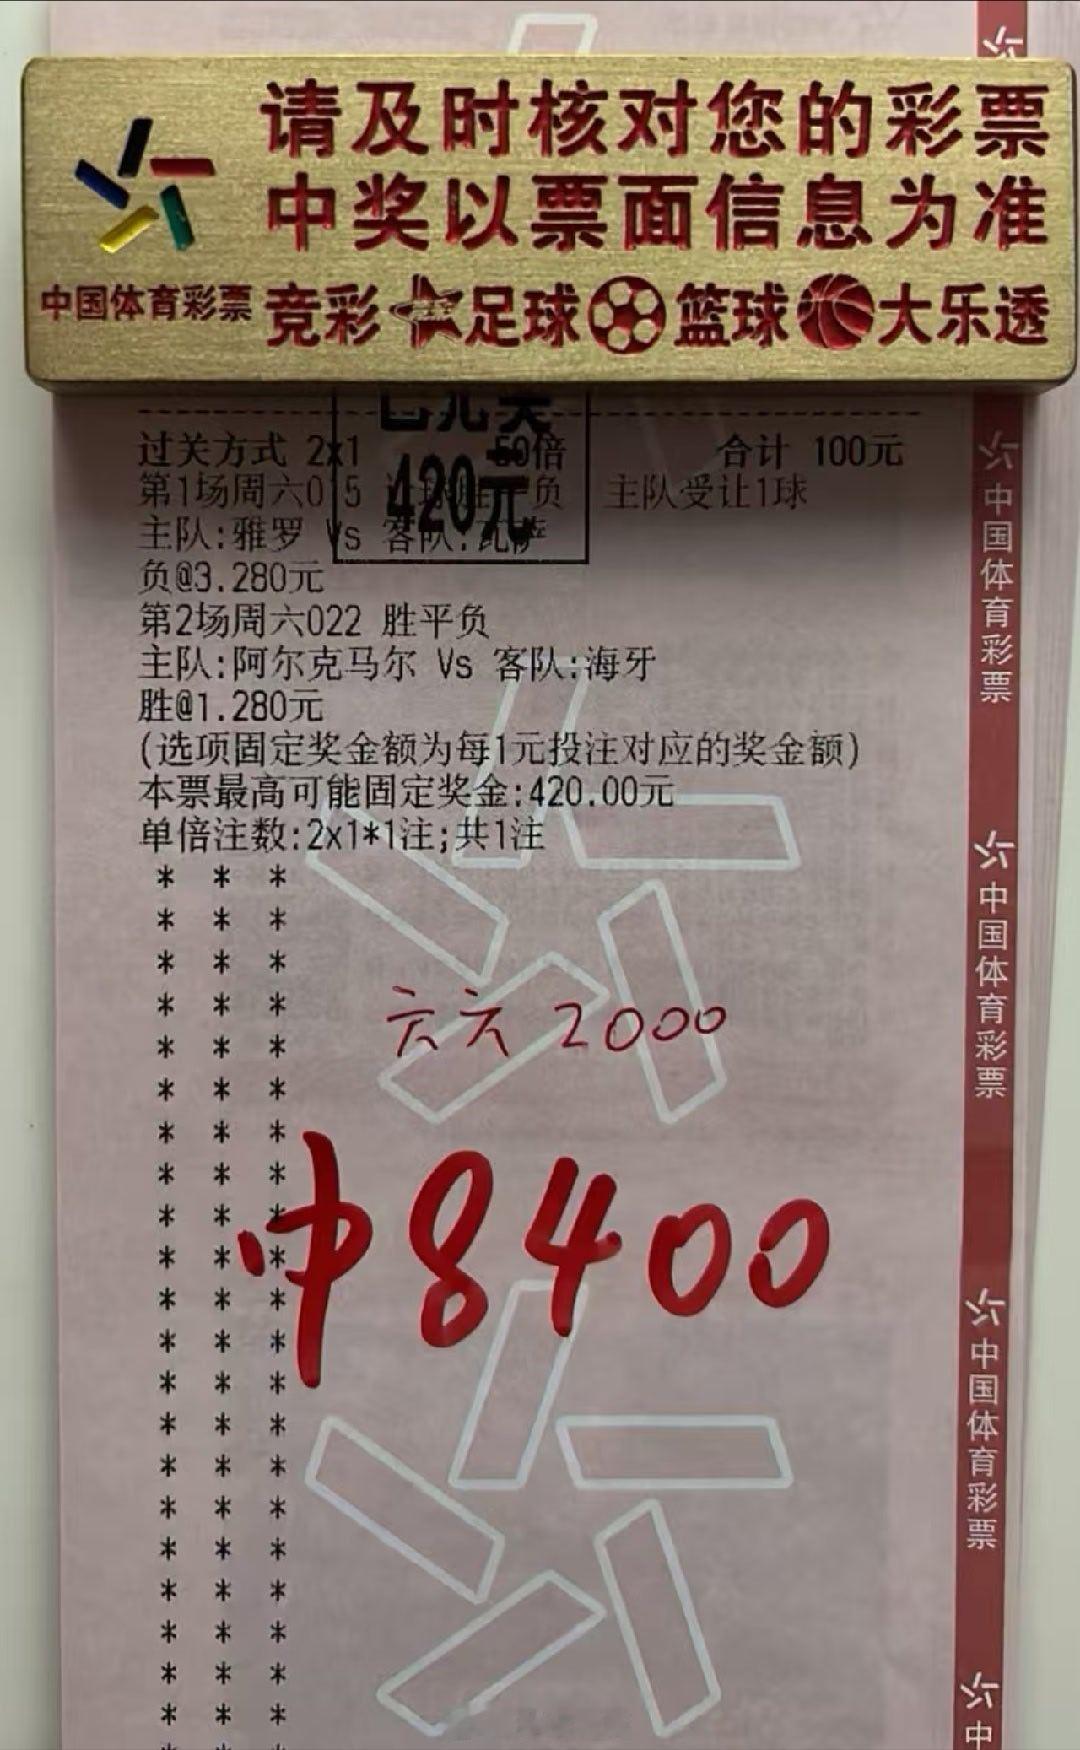 请及时核对您的彩票
中奖以票面信息为准
中国体育彩票 竞彩 足球 篮球 大乐透
过关方式 2x1 50倍 合计 100元
420元
第1场周六015 让球胜平负 主队受让1球
主队:雅罗 Vs 客队:瓦萨
负@3.280元
第2场周六022 胜平负
主队:阿尔克马尔 Vs 客队:海牙
胜@1.280元
(选项固定奖金额为每1元投注对应的奖金额)
本票最高可能固定奖金:420.00元
单倍注数:2x1*1注;共1注
六六 2000
中8400
中国体育彩票
中国体育彩票
中国体育彩票
中